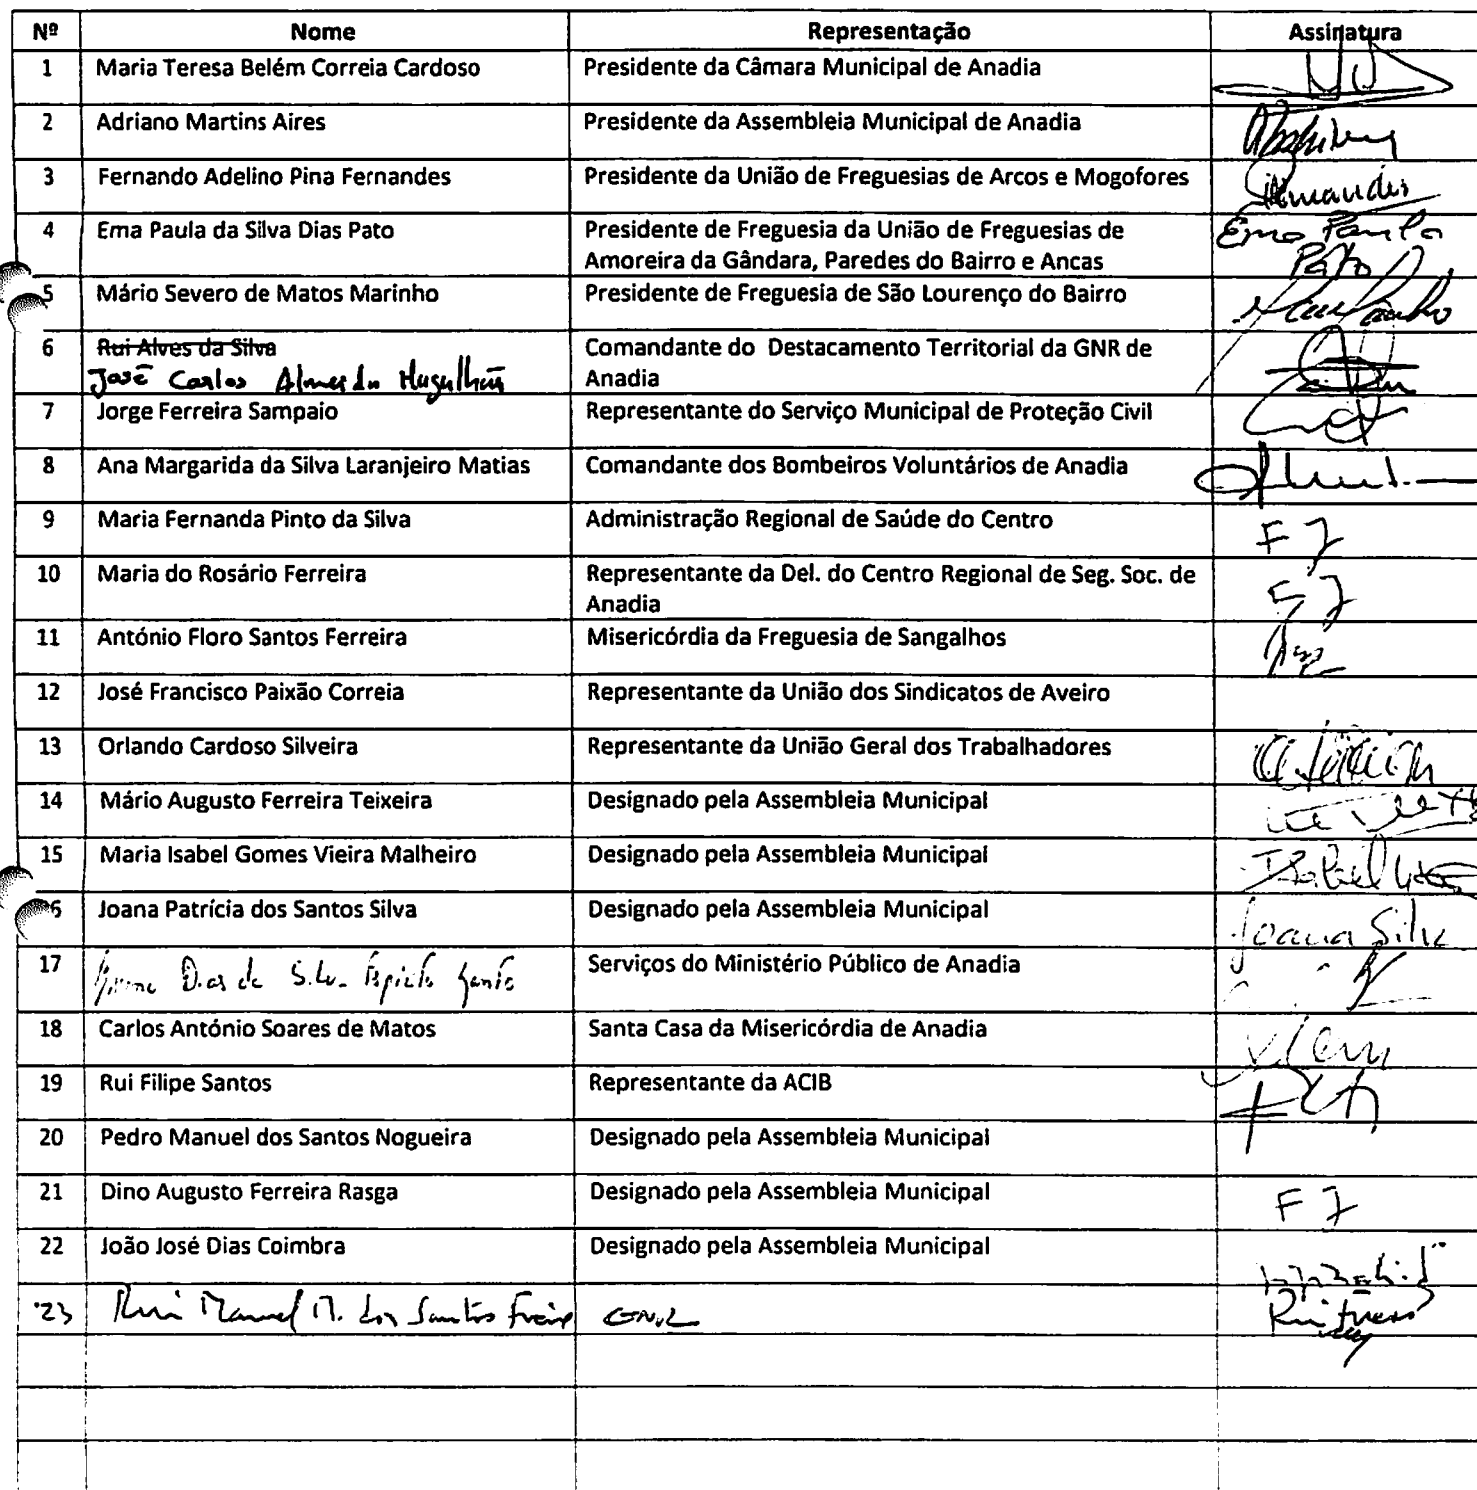 Nº Nome Representação Assinatura
1 Maria Teresa Belém Correia Cardoso Presidente da Câmara Municipal de Anadia
2 Adriano Martins Aires Presidente da Assembleia Municipal de Anadia
3 Fernando Adelino Pina Fernandes Presidente da União de Freguesias de Arcos e Mogofores Fernandes
4 Ema Paula da Silva Dias Pato Presidente de Freguesia da União de Freguesias de Ema Paula
Amoreira da Gândara, Paredes do Bairro e Ancas Pato
5 Mário Severo de Matos Marinho Presidente de Freguesia de São Lourenço do Bairro
6 Rui Alves da Silva Comandante do Destacamento Territorial da GNR de
José Carlos Almeida Magalhães Anadia
7 Jorge Ferreira Sampaio Representante do Serviço Municipal de Proteção Civil
8 Ana Margarida da Silva Laranjeiro Matias Comandante dos Bombeiros Voluntários de Anadia
9 Maria Fernanda Pinto da Silva Administração Regional de Saúde do Centro F J
10 Maria do Rosário Ferreira Representante da Del. do Centro Regional de Seg. Soc. de
Anadia F J
11 António Floro Santos Ferreira Misericórdia da Freguesia de Sangalhos
12 José Francisco Paixão Correia Representante da União dos Sindicatos de Aveiro
13 Orlando Cardoso Silveira Representante da União Geral dos Trabalhadores
14 Mário Augusto Ferreira Teixeira Designado pela Assembleia Municipal
15 Maria Isabel Gomes Vieira Malheiro Designado pela Assembleia Municipal Isabel
6 Joana Patrícia dos Santos Silva Designado pela Assembleia Municipal Joana Silva
17 Dias da Silva Espírito Santo Serviços do Ministério Público de Anadia
18 Carlos António Soares de Matos Santa Casa da Misericórdia de Anadia
19 Rui Filipe Santos Representante da ACIB
20 Pedro Manuel dos Santos Nogueira Designado pela Assembleia Municipal
21 Dino Augusto Ferreira Rasga Designado pela Assembleia Municipal F J
22 João José Dias Coimbra Designado pela Assembleia Municipal
23 Rui Manuel M. dos Santos Freire GNR Rui Freire